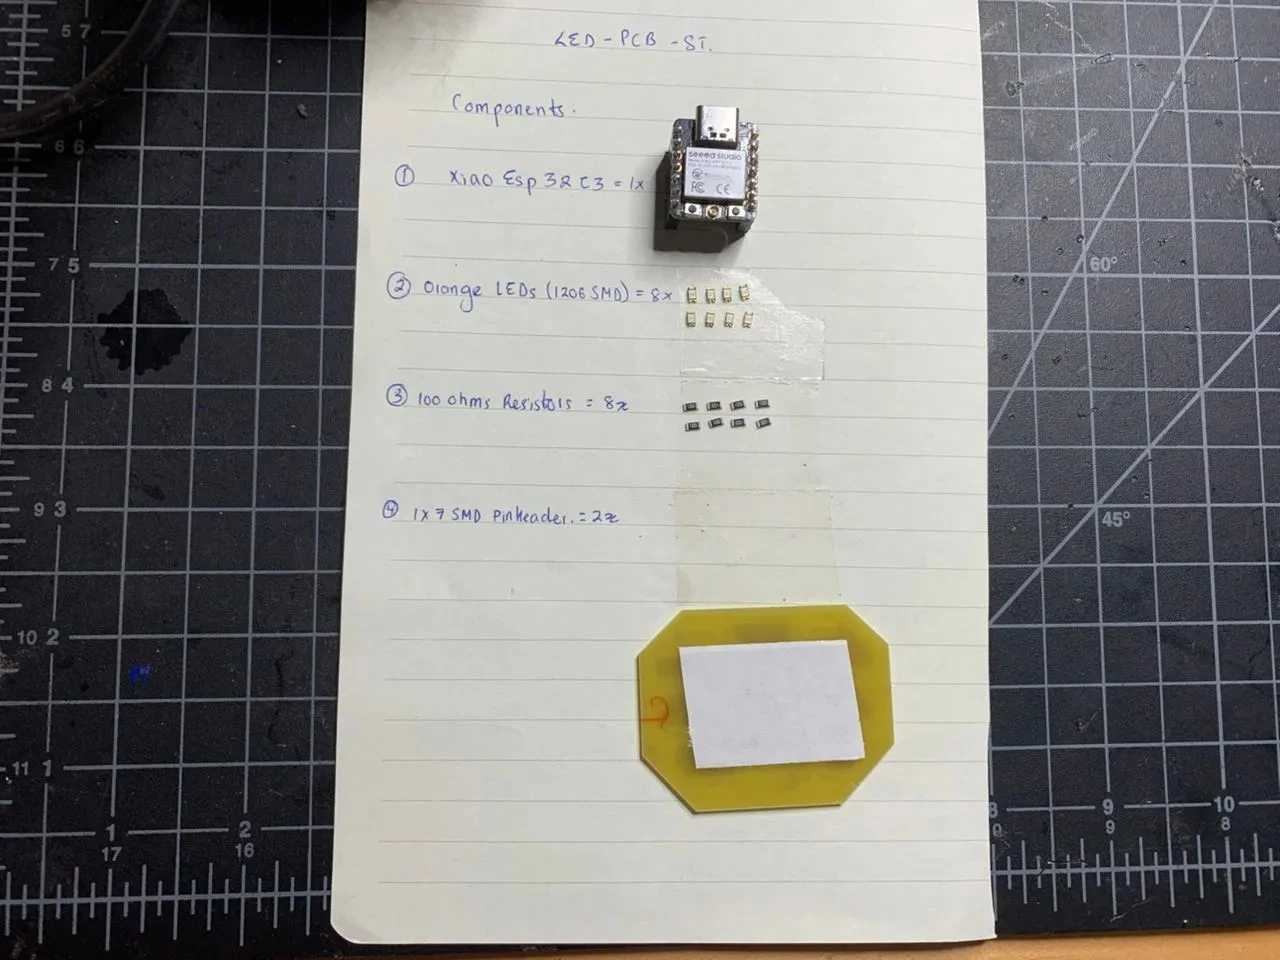 LED - PCB - ST.
Components.
① Xiao Esp 32 C3 = 1x
seeed studio
FC CE
② Orange LEDs (1206 SMD) = 8x
③ 100 ohms Resistors = 8x
④ 1x7 SMD Pinheader. = 2x
5 7
6 6
7 5
8 4
9 3
10 2
11 1
60°
45°
1 2
17 16
8 9 10
9 9 8